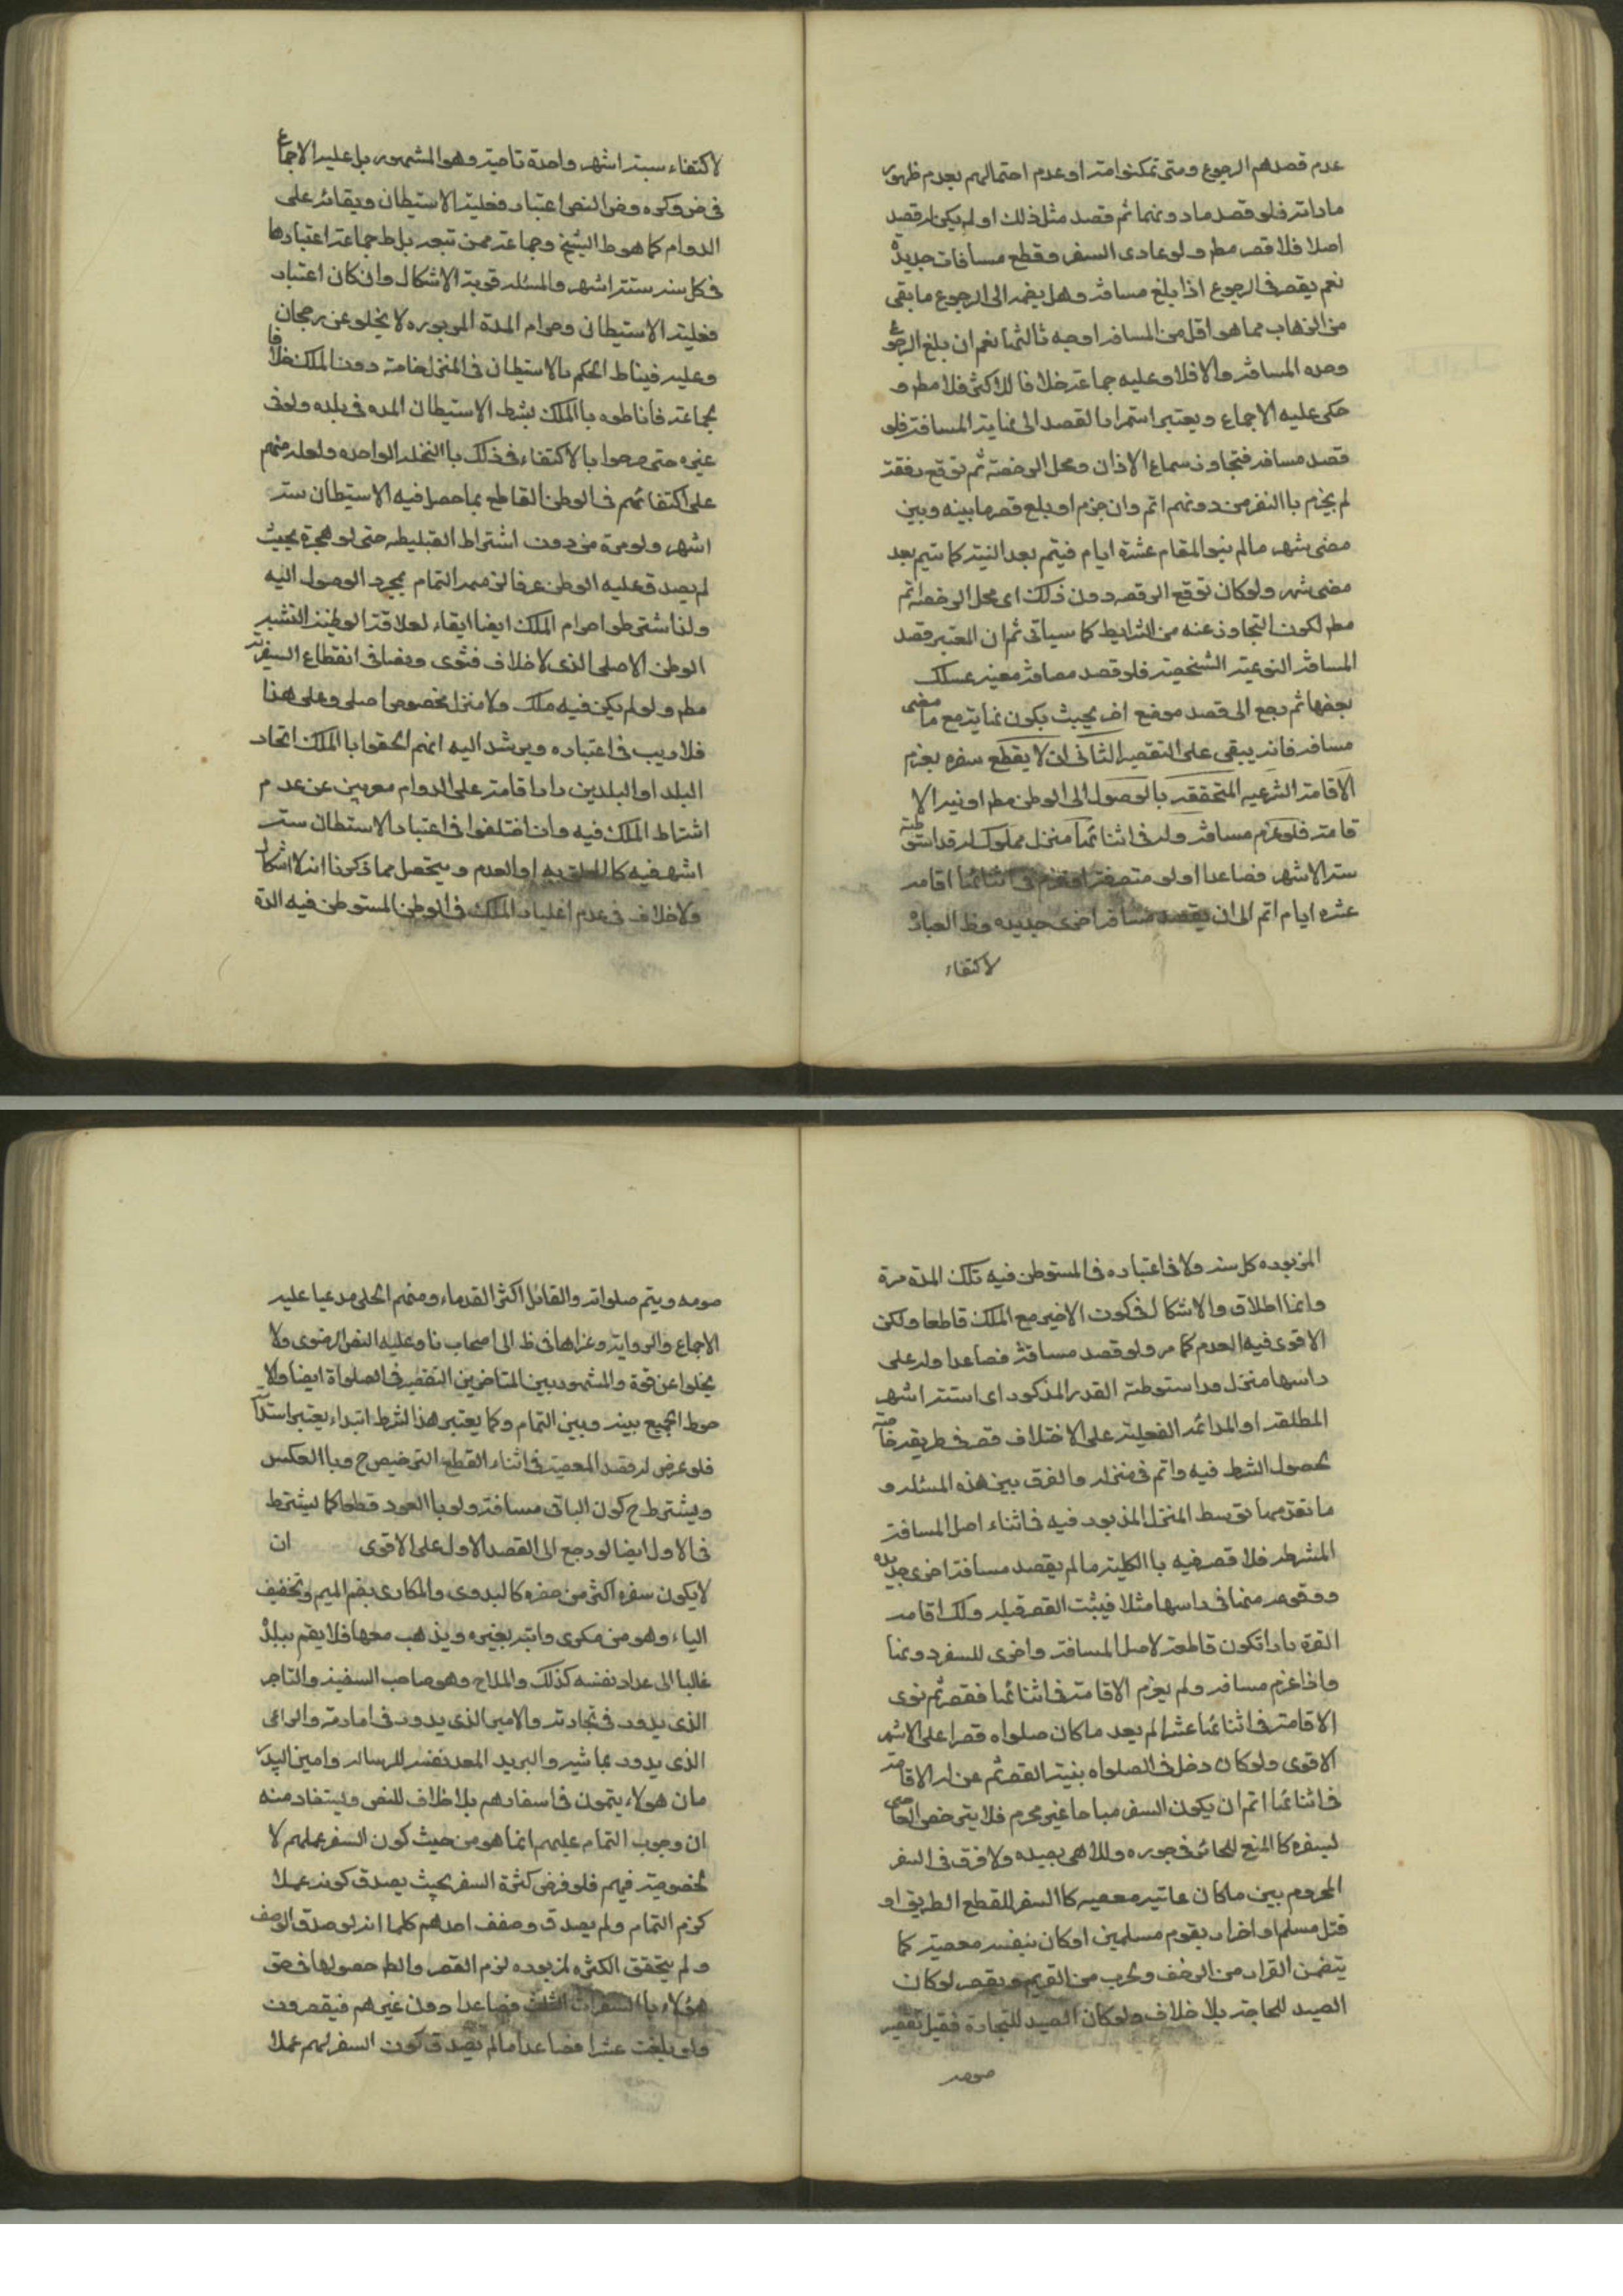 عدم قصدهم الرجوع ومتى تمكنوا منه او عدم احتمالهم بعدم ظهور
ماداته فلو قصد ماد ونها ثم قصد مثل ذلك او لم يكن له قصد
اصلا فلا قصر مطم ولو عادى السفر وقطع مسافات جديدة
نعم يقصر فى الرجوع اذا بلغ مسافة وهل يضم الى الرجوع ما بقى
من الذهاب مما هو اقل من المسافة اوجه ثالثها نعم ان بلغ الرجوع
وحده المسافة والا فلا وعليه جماعة خلافا للاكثر فلا مطم و
حكى عليه الاجماع ويعتبر استمرار القصد الى نهاية المسافة فلو
قصد مسافة فتجاوز سماع الاذان ومحل الرخصة ثم توقع رفقة
لم يجزم باالنفر من دونهم اتم وان جزم او بلع قصر ما بينه وبين
مضى شهر مالم ينو المقام عشرة ايام فيتم بعد النية كما يتم بعد
مضى شهر ولو كان توقع الرفقه دون ذلك اى محل الرخصة اتم
مطم لكون التجاوز عنه من الشرايط كما سياتى ثم ان المعتبر قصد
المسافة النوعية الشخصية فلو قصد مسافة معينة عسلك
بعضها ثم رجع الى قصد موضع اخر بحيث يكون نهايته مع ما مضى
مسافة فانه يبقى على التقصير الثانى ان لا يقطع سفره بعزم
الاقامة الشرعيه المتحققة بالوصول الى الوطن مطم او نية الا
قامة فلو عزم مسافة وله فى اثنائها منزل مملوك له قد استوطنه
ستة الاشهر فصاعدا اولو متفرقة او عزم فى اثنائها اقامة
عشرة ايام اتم الى ان يقصد مسافة اخرى جديده وظ العبارة
لاكتفاء
لاكتفاء ستة اشهر واحدة تاحية وهو المشهور بل عليه الاجماع
فى ض وكره وض النص اعتبار فعلية الاستيطان وبقائه على
الدوام كما هو ط الشيخ وجماعة ممن تبعه بل ط جماعة اعتبارها
فى كل سنة ستة اشهر والمسئلة قوية الاشكال وان كان اعتبار
فعلية الاستيطان ودوام المدة المزبوره لا يخلو عن رجحان
وعليه فيناط الحكم بالاستيطان فى المنزل خاصة دون الملك خلافا
لجماعة فاناطوه باالملك بشرط الاستيطان المده فى بلده ولو فى
غيره حتى صرحوا بالاكتفاء فى ذلك باالنخلة الواحده ولعله منهم
على اكتفائهم فى الوطن القاطع بما حصل فيه الاستيطان ستة
اشهر ولو مرة من دون اشتراط الفعلية حتى لو هجره بحيث
لم يصدق عليه الوطن عرفا لزمه التمام بمجرد الوصول اليه
ولذا شترطوا دوام الملك ايضا ابقاء لعلاقة الوطنية لتشبه
الوطن الاصلى الذى لا خلاف فتوى ونصا فى انقطاع السفر به
مطم ولو لم يكن فيه ملك ولا منزل مخصوص اصلى وعلى هذا
فلا ريب فى اعتباره ويرشد اليه انهم الحقوا باالملك اتخاد
البلد او البلدين دار اقامة على الدوام معربين عن عدم
اشتراط الملك فيه وان اختلفوا فى اعتبار الاستيطان ستة
اشهر فيه كالملحق به او العدم ويتحصل مما ذكرنا انه لا اشكال
ولا خلاف فى عدم اعتبار الملك فى الوطن المستوطن فيه الدة
المزبوده كل سنة ولا فى اعتباره فى المستوطن فيه تلك المدة مرة
وانما اطلاق والاشكال فى كون الاخير مع الملك قاطعا ولكن
الاقوى فيه العدم كما مر ولو قصد مسافة فصاعدا وله على
راسها منزل قد استوطنه القدر المذكور اى استة اشهر
المطلقة او المدائمه الفعلية على الاختلاف قصر فى طريقه خاصته
لحصول الشرط فيه واتم فى منزله والفرق بين هذه المسئلة و
ما تقدمها توسط المنزل المزبور فيه فى اثناء اصل المسافة
المشرطة فلا قصر فيه باالكلية مالم يقصد مسافة اخرى جديده
ووقوعه منها فى راسها مثلا فيثبت القصر قبله ولك اقامة
القرة بارا تكون قاطعة لاصل المسافة واخرى للسفر دونها
واذا عزم مسافة ولم يعزم الاقامة فى اثنائها فقصر ثم نوى
الاقامة فى اثنائها عشرا لم يعد ما كان صلواه قصرا على الاشهر
الاقوى ولو كان دخل فى الصلواه بنية القصر ثم عن له الاقامة
فى اثنائها اتم ان يكون السفر مباحا غير محرم فلا يترخص العاصى
لسفره كا المنع للجائر فى جوره وللاهى بصيده ولا فرق فى السفر
المحروم بين ما كان غايته معصية كا السفر للقطع الطريق او
قتل مسلم او اضرار بقوم مسلمين او كان بنفسه معصية كما
يتضمن الفرار من الزحف وهرب من الغريم ويقصر لو كان
الصيد للحاجة بلا خلاف ولو كان الصيد للتجارة فقيل تقصير
صومه
صومه ويتم صلواته والقائل اكثر القدماء ومنهم الحلى مدعيا عليه
الاجماع والرواية وعزاها فى ط الى اصحاب نا وعليه النص الرضوى ولا
يخلوا عن قوة والمشهور بين المتاخرين التقصير فى الصلواة ايضا والا
حوط الجمع بينه وبين التمام وكما يعتبر هذا لشرط ابتداء يعتبر استدامة
فلو عرض له قصد المعصية فى اثناء القطع الترخيص ح وباالعكس
ويشترط ح كون الباقى مسافة ولو باالعود قطعا كما يشترط
فى الاول ايضا لو رجع الى القصد الاول على الاقوى ان
لا يكون سفره اكثر من حضره كا لبدوى والمكارى بضم الميم وتخفيف
الياء وهو من مكرى دابته بغيره ويذهب معها فلا يقم ببلدة
غالبا الى عداد نفسه كذلك والملاح وهو صاحب السفينة والتاجر
الذى يدور فى تجارته والامير الذى يدور فى امارته والراعى
الذى يدور بماشيه والبريد المعد نفسه للرساله وامين البيدر
مان هولاء يتمون فى اسفارهم بلا خلاف للنص وليستفاد منه
ان وجوب التمام عليهم انما هو من حيث كون السفر عملهم لا
لخصوصية فيهم فلو فرض كثرة السفر بحيث يصدق كونه عملا
لزم التمام ولم يصدق وصفف احدهم كلما انه لو صدق الوصف
و لم يتحقق الكثره لمزبوده لزم القصر والط حصولها فى حق
هؤلاء باالسفرات الثلث فصاعدا دون غيرهم فيقصرون
ولو بلغت عشرا فصاعدا مالم يصدق كون السفر لهم عملا